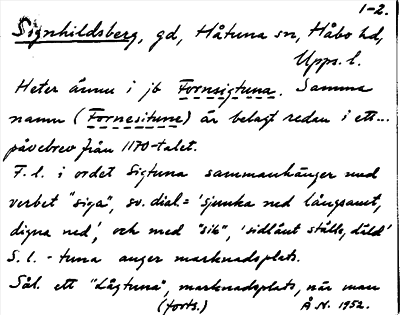 1-2.
Signhildsberg, gd, Håtuna sn, Håbo hd,
Upps. l.
Heter ännu i jb Fornsigtuna. Samma
namn (Fornesitune) är belagt redan i ett...
påvebrev från 1170-talet.
F. l. i ordet Sigtuna sammanhänger med
verbet "siga", sv. dial. = 'sjunka ned långsamt,
digna ned', och med "sik", 'sidlänt ställe, däld'
S. l. - tuna anger marknadsplats.
Sål. ett "Lågtuna", marknadsplats, när man
(forts.) Å N. 1952.